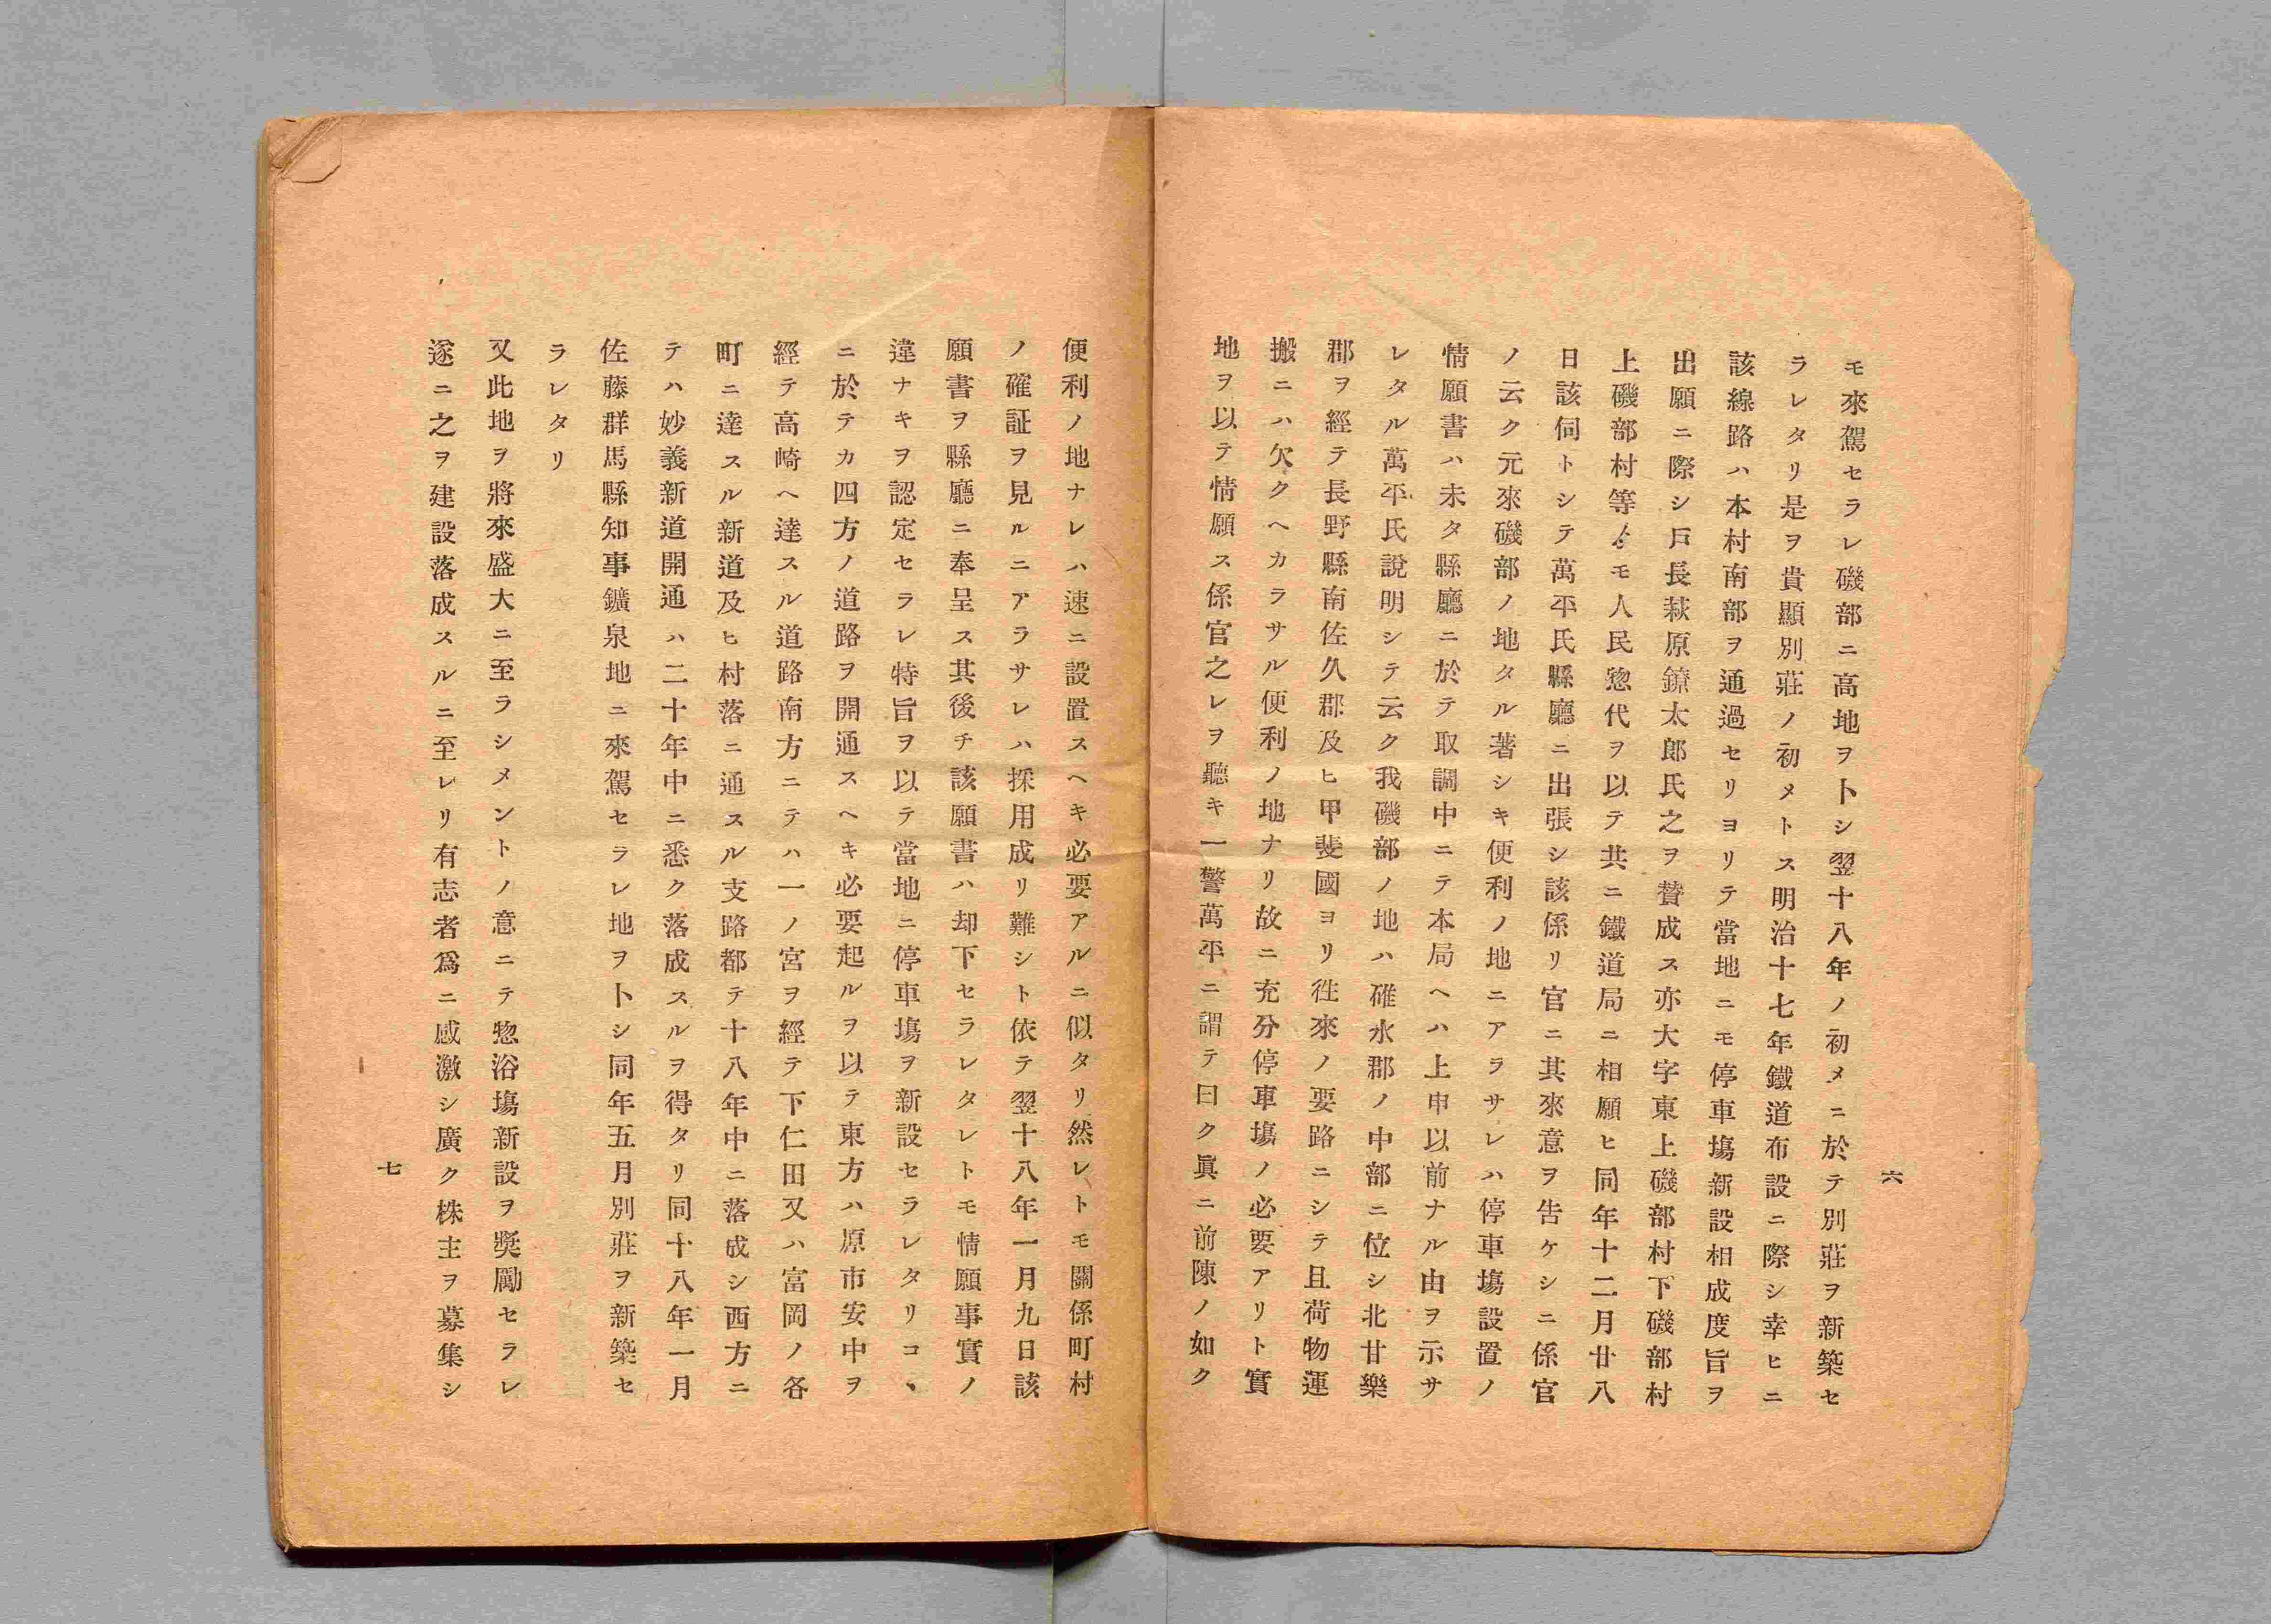 モ來駕セラレ磯部ニ高地ヲトシ翌十八年ノ初メニ於テ別莊ヲ新築セ
ラレタリ是ヲ貴顯別莊ノ初メトス明治十七年鐵道布設ニ際シ幸ヒニ
該線路ハ本村南部ヲ通過セリヨリテ當地ニモ停車塲新設相成度旨ヲ
出願ニ際シ戸長萩原鐐太郎氏之ヲ賛成ス亦大字東上磯部村下磯部村
上磯部村等ゟモ人民惣代ヲ以テ共ニ鐵道局ニ相願ヒ同年十二月廿八
日該伺トシテ萬平氏縣廳ニ出張シ該係リ官ニ其來意ヲ告ケシニ係官
ノ云ク元來磯部ノ地タル著シキ便利ノ地ニアラサレハ停車塲設置ノ
情願書ハ未タ縣廳ニ於テ取調中ニテ本局ヘハ上申以前ナル由ヲ示サ
レタル萬平氏說明シテ云ク我磯部ノ地ハ碓氷郡ノ中部ニ位シ北甘樂
郡ヲ經テ長野縣南佐久郡及ヒ甲斐國ヨリ徃來ノ要路ニシテ且荷物運
搬ニハ欠クヘカラサル便利ノ地ナリ故ニ充分停車塲ノ必要アリト實
地ヲ以テ情願ス係官之レヲ聽キ一警萬平ニ謂テ曰ク眞ニ前陳ノ如ク
六
便利ノ地ナレハ速ニ設置スヘキ必要アルニ似タリ然レトモ關係町村
ノ確証ヲ見ルニアラサレハ採用成リ難シト依テ翌十八年一月九日該
願書ヲ縣廳ニ奉呈ス其後チ該願書ハ却下セラレタレトモ情願事實ノ
違ナキヲ認定セラレ特旨ヲ以テ當地ニ停車塲ヲ新設セラレタリコヽ
ニ於テカ四方ノ道路ヲ開通スヘキ必要起ルヲ以テ東方ハ原市安中ヲ
經テ高崎ヘ達スル道路南方ニテハ一ノ宮ヲ經テ下仁田又ハ富岡ノ各
町ニ達スル新道及ヒ村落ニ通スル支路都テ十八年中ニ落成シ西方ニ
テハ妙義新道開通ハ二十年中ニ悉ク落成スルヲ得タリ同十八年一月
佐藤群馬縣知事鑛泉地ニ來駕セラレ地ヲトシ同年五月別莊ヲ新築セ
ラレタリ
又此地ヲ將來盛大ニ至ラシメントノ意ニテ惣浴塲新設ヲ奬勵セラレ
遂ニ之ヲ建設落成スルニ至レリ有志者爲ニ感激シ廣ク株主ヲ募集シ
七